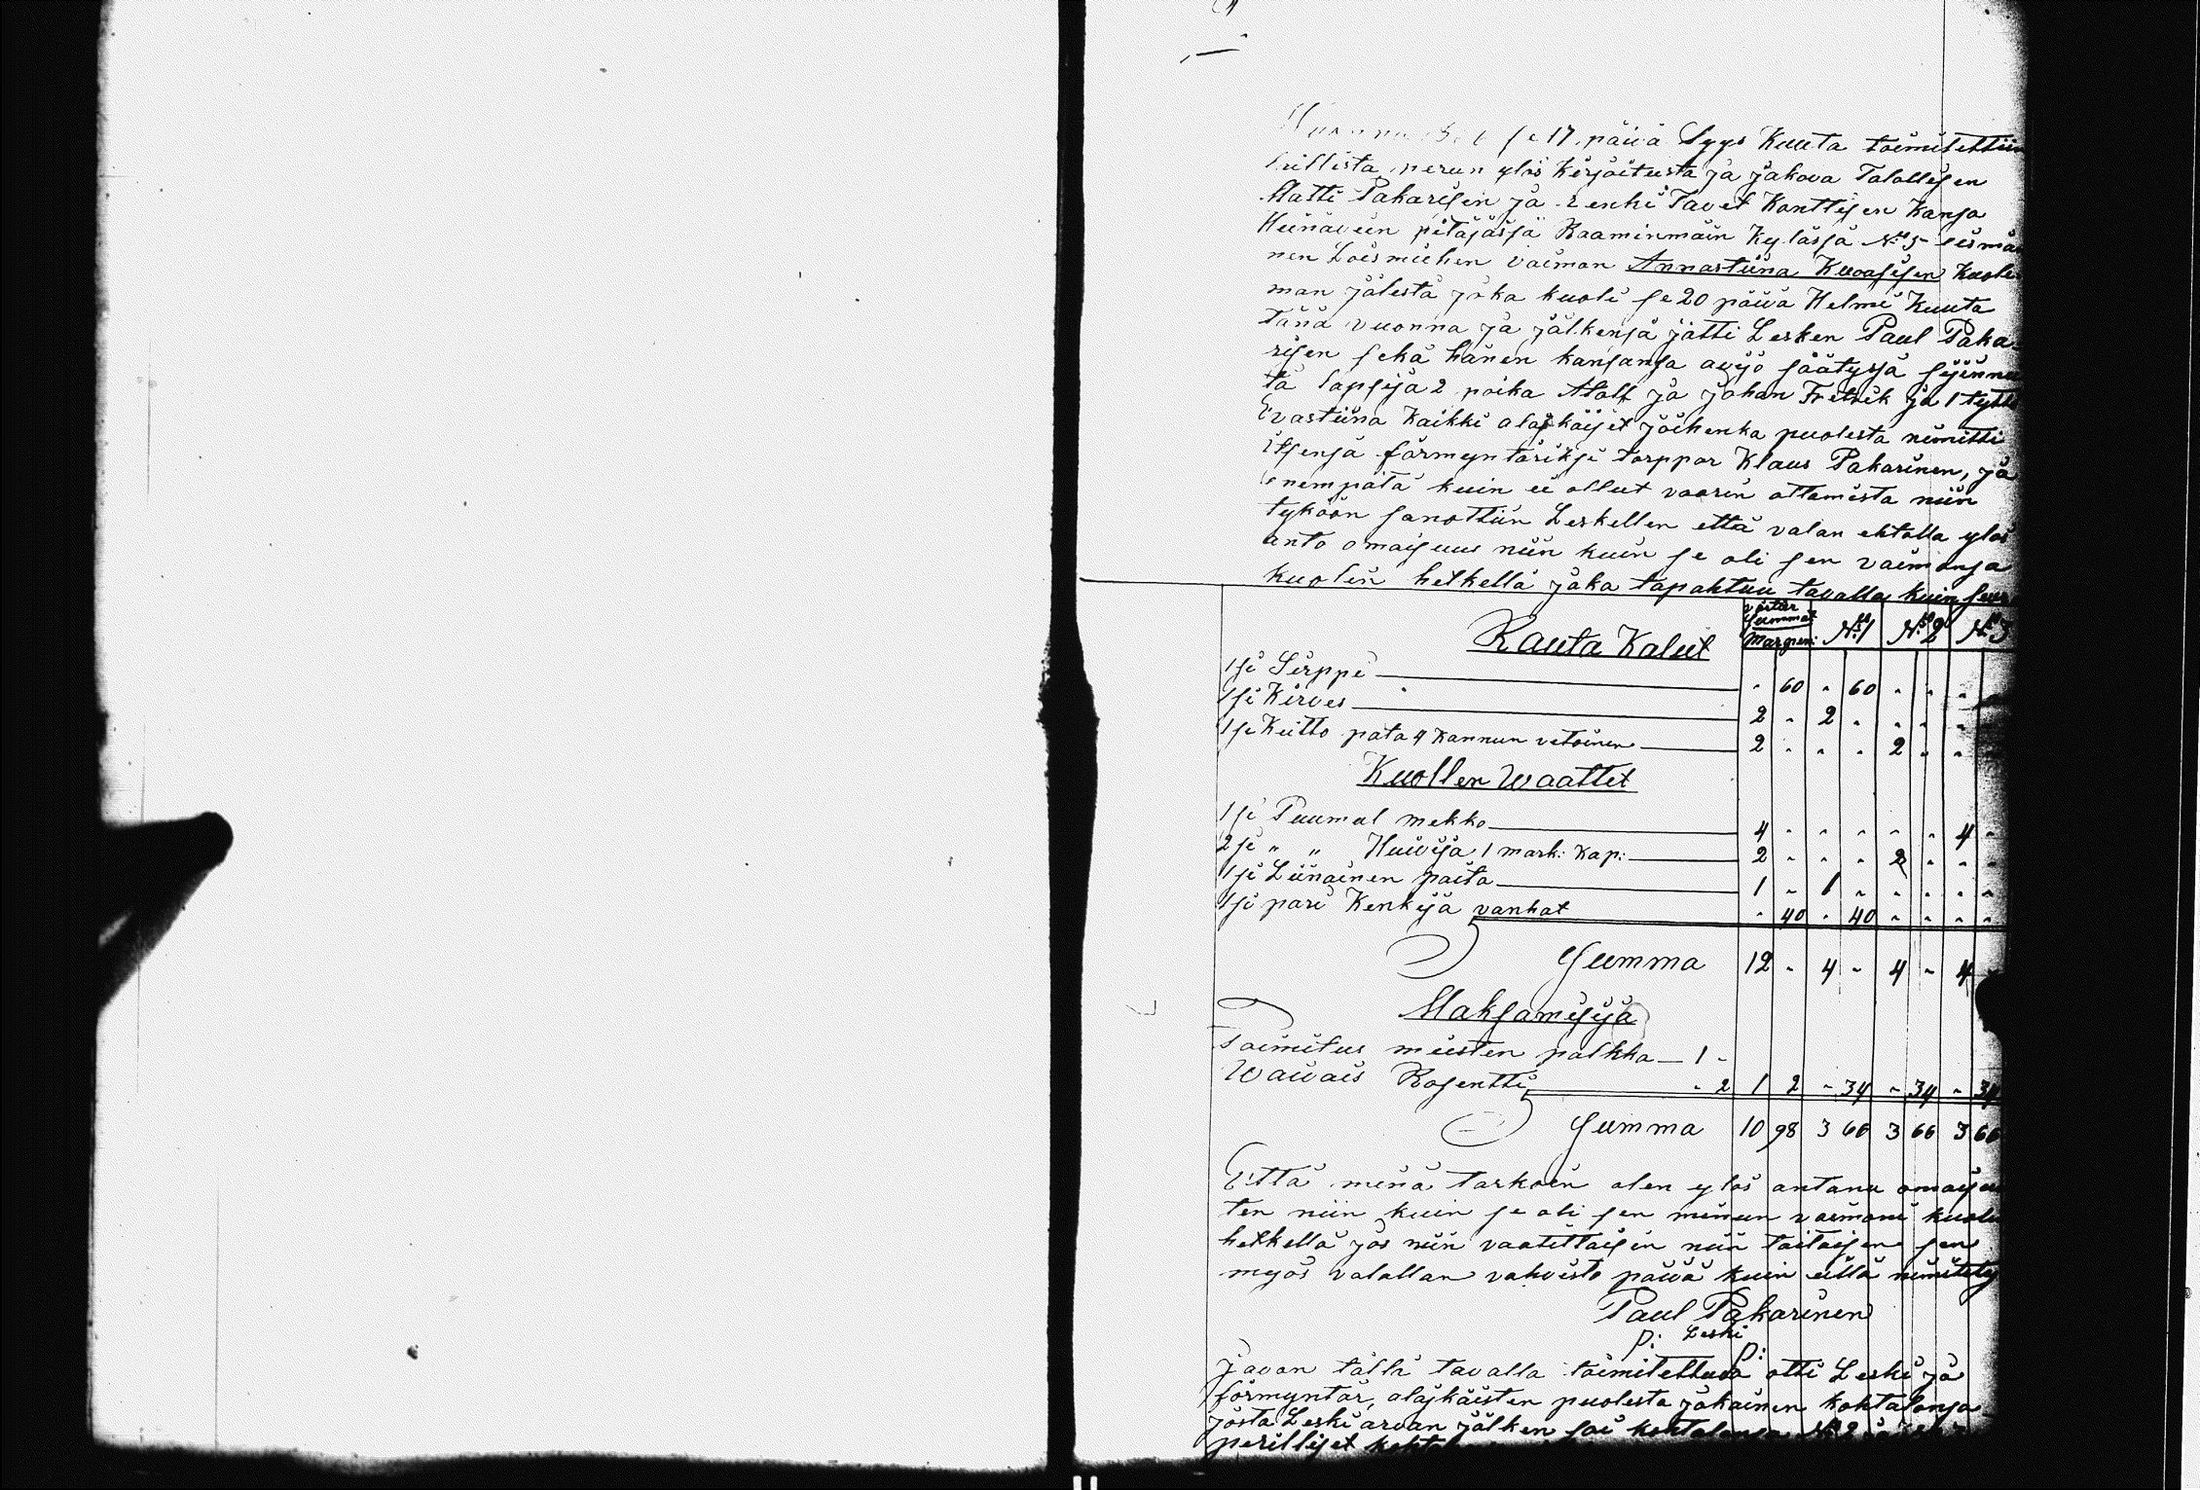 se 17. päivä Syys Kuuta toimitettiin
perun ylös kirjoitusta ja jakoa Talollisen
Matti Pakarisen ja renki Tavet Konttisen kansa
Heinäveen pitäjässä Raaminmäin Kylässä No 5
nen Loismiehen vaimon Annastiina Kuvasisen kuole
man jälestä joka kuoli se 20 päivä Helmi Kuuta
tänä vuonna ja jälkensä jätti Lesken Paul Paka-
risen sekä hänen kansansa avijo säätyssä syünny
tä lapsija 2 poika Atolf ja Johan Fretrik ja 1 tyttö
Evastiina Kaikki alaskäiset joihenka puolesta nimitti
itsensä förmyntäriksi torppar Klaus Pakarinen, ja
enempätä kuin ei ollut vaarin ottamista niin
tyköön sanottiin Leskellen että valan ehtolla ylös
anto omaisuus niin kuin se oli sen vaimonsa
kuolin hetkellä joka tapahtuu tavalla kuin seur
Summat
Markan: No 1 No 2 No 3
Rauta Kalut
1 si Sirppi - 60 - 60 - - -
1 si Kirves 2 - 2 - - - -
1 si Keitto pata 4 kannun vetoinen 2 - - - 2 - -
Kuollen Waattet
1 si Puumul mekko 4 - - - - - 4 -
2 si " " Huivija 1 mark: kap: 2 - - - 2 - - -
1 si Liinainen paita 1 - 1 - - - - -
1 si pari Kenkijä vanhat - 40 - 40 - - - -
Summa 12 - 4 - 4 - 4
Maksamisija
Toimitus miesten palkka — 1 -
Waivais Rosentti - 2 1 2 - 34 - 34 - 34
Summa 10 98 3 66 3 66 3 66
Että minä tarkoin olen ylös antanu omaisu
ten niin kuin se oli sen minun vaimoni kuolin
hetkellä jos niin vaatittaisin niin taitaisin sen
myös valallan vahvista päivä kuin eillä nimitety
Paul Pakarinen
Leski
p: p:
Javon tällä tavalla toimitettua otti Leski ja
förmyntär, alaskäisten puolesta jokainen kohtalonsa
josta Leski arvan jälken sai kohtalonsa No 2
perilliset